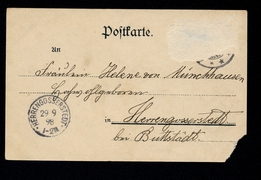 Postkarte.
An
Fräulein Helene von Münchhausen
Hochwohlgeboren
in Herrengosserstedt
bei Buttstädt.
HERRENGOSSERSTEDT
29 9
98
1-2N